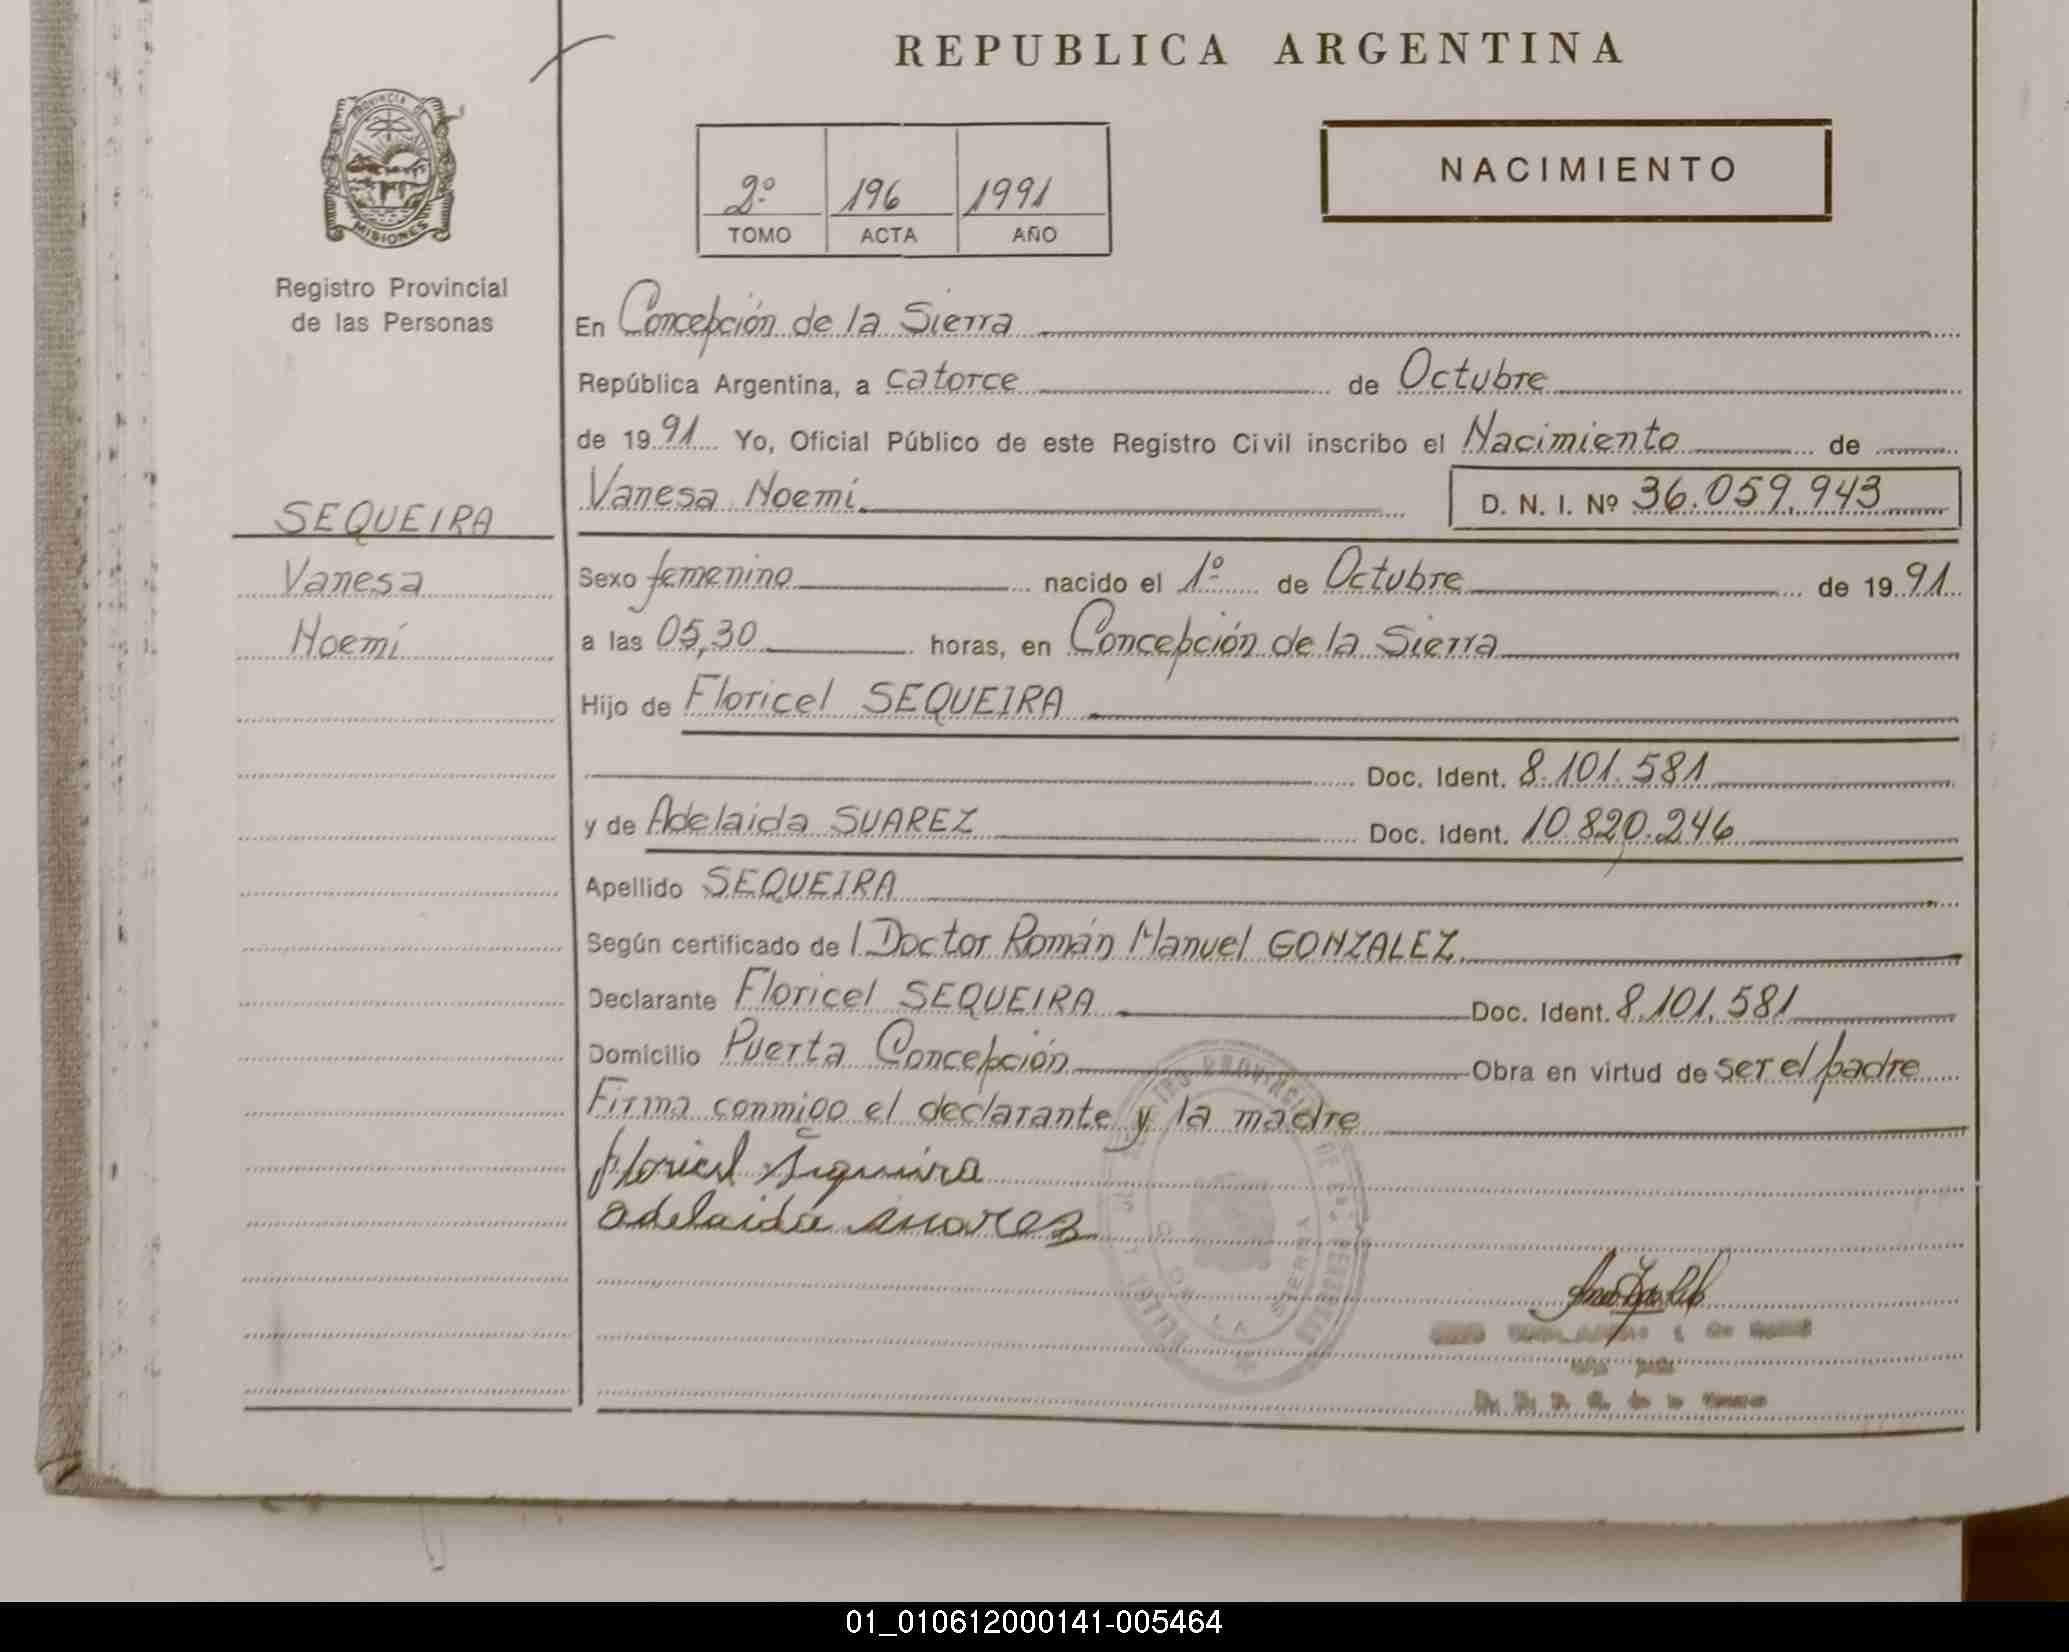 REPUBLICA ARGENTINA
PROVINCIA DE
MISIONES
Registro Provincial
de las Personas
2º 196 1991
TOMO ACTA AÑO
NACIMIENTO
SEQUEIRA
Vanesa
Noemí
En Concepción de la Sierra
República Argentina, a catorce de Octubre
de 1991 Yo, Oficial Público de este Registro Civil inscribo el Nacimiento de
Vanesa Noemí D. N. I. Nº 36.059.943
Sexo femenino nacido el 1º de Octubre de 1991
a las 05,30 horas, en Concepción de la Sierra
Hijo de Floricel SEQUEIRA
Doc. Ident. 8.101.581
y de Adelaida SUAREZ Doc. Ident. 10.820.246
Apellido SEQUEIRA
Según certificado de l Doctor Román Manuel GONZALEZ
Declarante Floricel SEQUEIRA Doc. Ident. 8.101.581
Domicilio Puerta Concepción Obra en virtud de ser el padre
Firma conmigo el declarante y la madre
Floricel Siqueira
adelaida suares
DE LA SIERRA
01_010612000141-005464